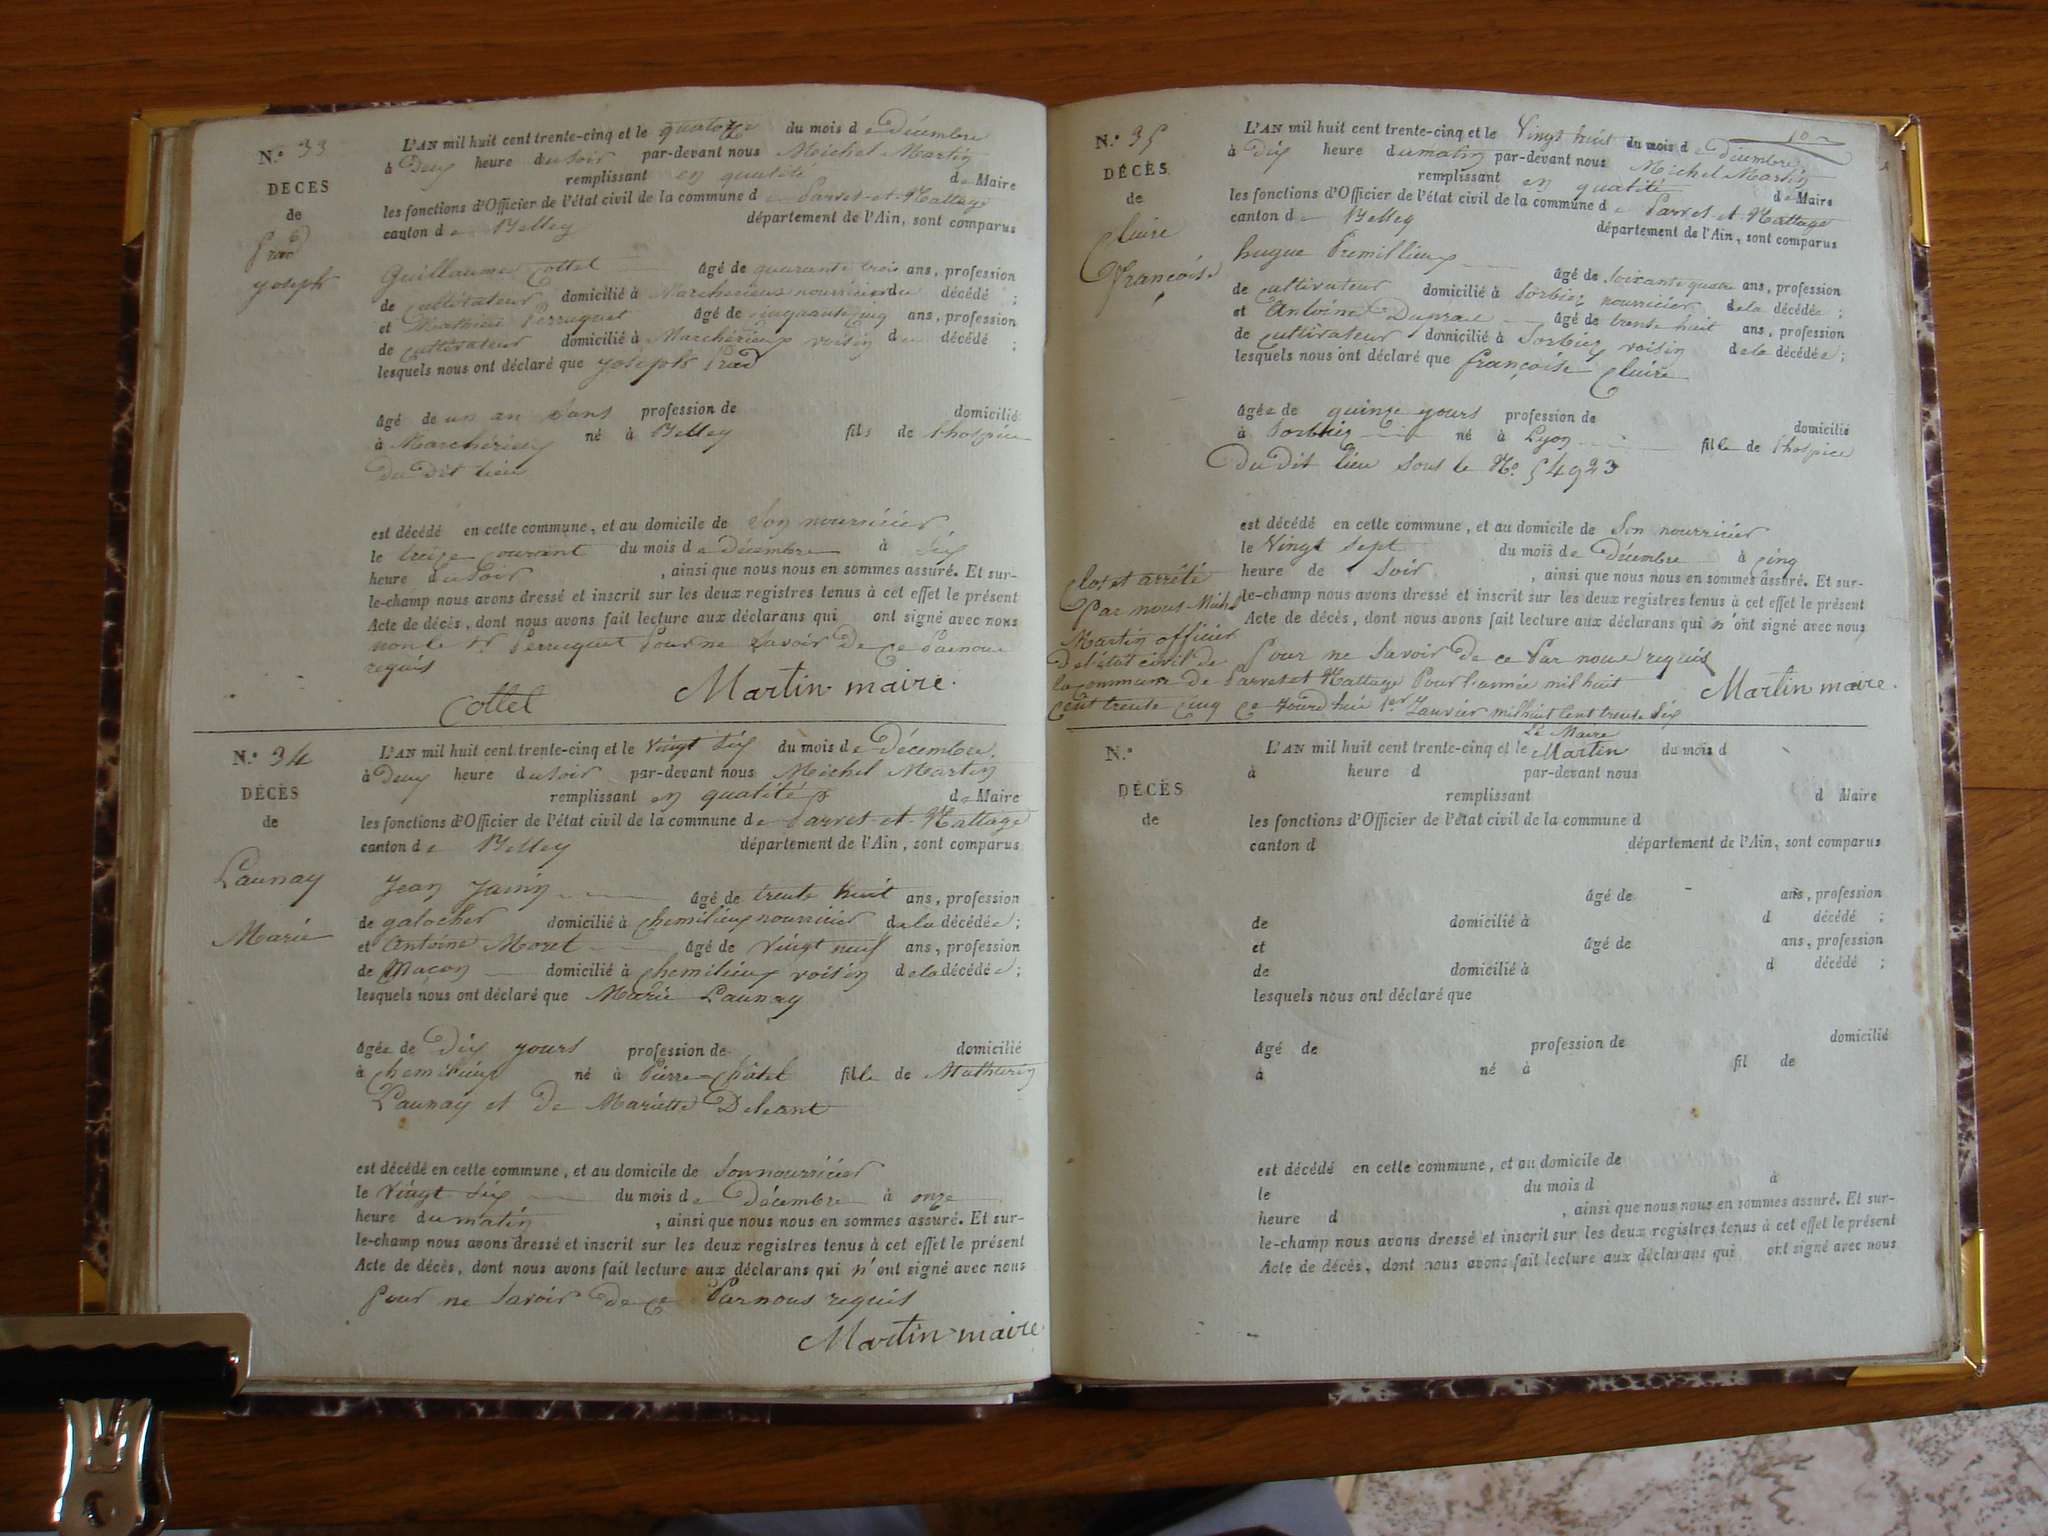 N.° 33
DÉCÈS
de
Prad
joseph
L'AN mil huit cent trente-cinq et le quatorze du mois de Décembre
à Deux heure du soir par-devant nous Michel Martin
remplissant en qualité de Maire
les fonctions d'Officier de l'état civil de la commune de Parves-et-Nattage
canton de Belley département de l'Ain, sont comparus
Guillaume Cottel âgé de quarante trois ans, profession
de Cultivateur domicilié à Marcherieux nourricier du décédé ;
et Mathieu Perruquet âgé de cinquante cinq ans, profession
de Cultivateur domicilié à Marchérieux voisin du décédé ;
lesquels nous ont déclaré que joseph Prad
âgé de un an Sans profession de domicilié
à Marchérieux né à Belley fils de l'hospice
du Dit lieu
est décédé en cette commune, et au domicile de Son nourricier
le treize courant du mois de Décembre à Six
heure du soir , ainsi que nous nous en sommes assuré. Et sur-
le-champ nous avons dressé et inscrit sur les deux registres tenus à cet effet le présent
Acte de décès, dont nous avons fait lecture aux déclarans qui ont signé avec nous
non le Sr Perruquet Pour ne Savoir De ce Par nous
requis
Cottel Martin maire.
N.° 34
DÉCÈS
de
Launay
Marie
L'AN mil huit cent trente-cinq et le Vingt Six du mois de Décembre.
à Deux heure du soir par-devant nous Michel Martin
remplissant en qualité de Maire
les fonctions d'Officier de l'état civil de la commune de Parves-et-Nattage
canton de Belley département de l'Ain, sont comparus
Jean Janin âgé de trente huit ans, profession
de galocher domicilié à Chemilieux nourricier de la décédée ;
et Antoine Moret âgé de Vingt neuf ans, profession
de Maçon domicilié à Chemilieux voisin de la décédée ;
lesquels nous ont déclaré que Marie Launay
âgée de Dix yours profession de domicilié
à Chemilieux né à Pierre-Châtel fille de Mathurin
Launay et de Mariette Deleant
est décédé en cette commune, et au domicile de Son nourricier
le Vingt Six du mois de Décembre à onze
heure du matin , ainsi que nous nous en sommes assuré. Et sur-
le-champ nous avons dressé et inscrit sur les deux registres tenus à cet effet le présent
Acte de décès, dont nous avons fait lecture aux déclarans qui n'ont signé avec nous
Pour ne Savoir De ce Par nous requis
Martin maire
10
N.° 35
DÉCÈS
de
Claire
françoise
L'AN mil huit cent trente-cinq et le Vingt huit du mois de Décembre
à Dix heure du matin par-devant nous Michel Martin
remplissant en qualité de Maire
les fonctions d'Officier de l'état civil de la commune de Parves-et-Nattage
canton de Belley département de l'Ain, sont comparus
hugue Premillieux âgé de Soixante quatre ans, profession
de Cultivateur domicilié à Sorbiez nourricier de la décédée ;
et Antoine Duprac âgé de trente huit ans, profession
de Cultivateur domicilié à Sorbiez voisin de la décédée ;
lesquels nous ont déclaré que françoise Claire
âgée de quinze yours profession de domicilié
à Sorbiez né à Lyon fille de l'hospice
Du Dit lieu Sous le No 54923
est décédé en cette commune, et au domicile de Son nourricier
le Vingt Sept du mois de Décembre à Cinq
heure de Soir , ainsi que nous nous en sommes assuré. Et sur-
le-champ nous avons dressé et inscrit sur les deux registres tenus à cet effet le présent
Acte de décès, dont nous avons fait lecture aux déclarans qui n'ont signé avec nous
Pour ne Savoir De ce Par nous requis
Martin maire.
Clos et arrêté
Par nous Michel
Martin officier
De l'état civil de
la commune de Parves et Nattage Pour l'année mil huit
Cent trente Cinq Ce Jourd'hui 1er Janvier mil huit Cent trente Six
Le Maire
Martin
N.°
DÉCÈS
de
L'AN mil huit cent trente-cinq et le du mois d
à heure d par-devant nous
remplissant d Maire
les fonctions d'Officier de l'état civil de la commune d
canton d département de l'Ain, sont comparus
âgé de ans, profession
de domicilié à d décédé ;
et âgé de ans, profession
de domicilié à d décédé ;
lesquels nous ont déclaré que
âgé de profession de domicilié
à né à fil de
est décédé en cette commune, et au domicile de
le du mois d à
heure d , ainsi que nous nous en sommes assuré. Et sur-
le-champ nous avons dressé et inscrit sur les deux registres tenus à cet effet le présent
Acte de décès, dont nous avons fait lecture aux déclarans qui ont signé avec nous